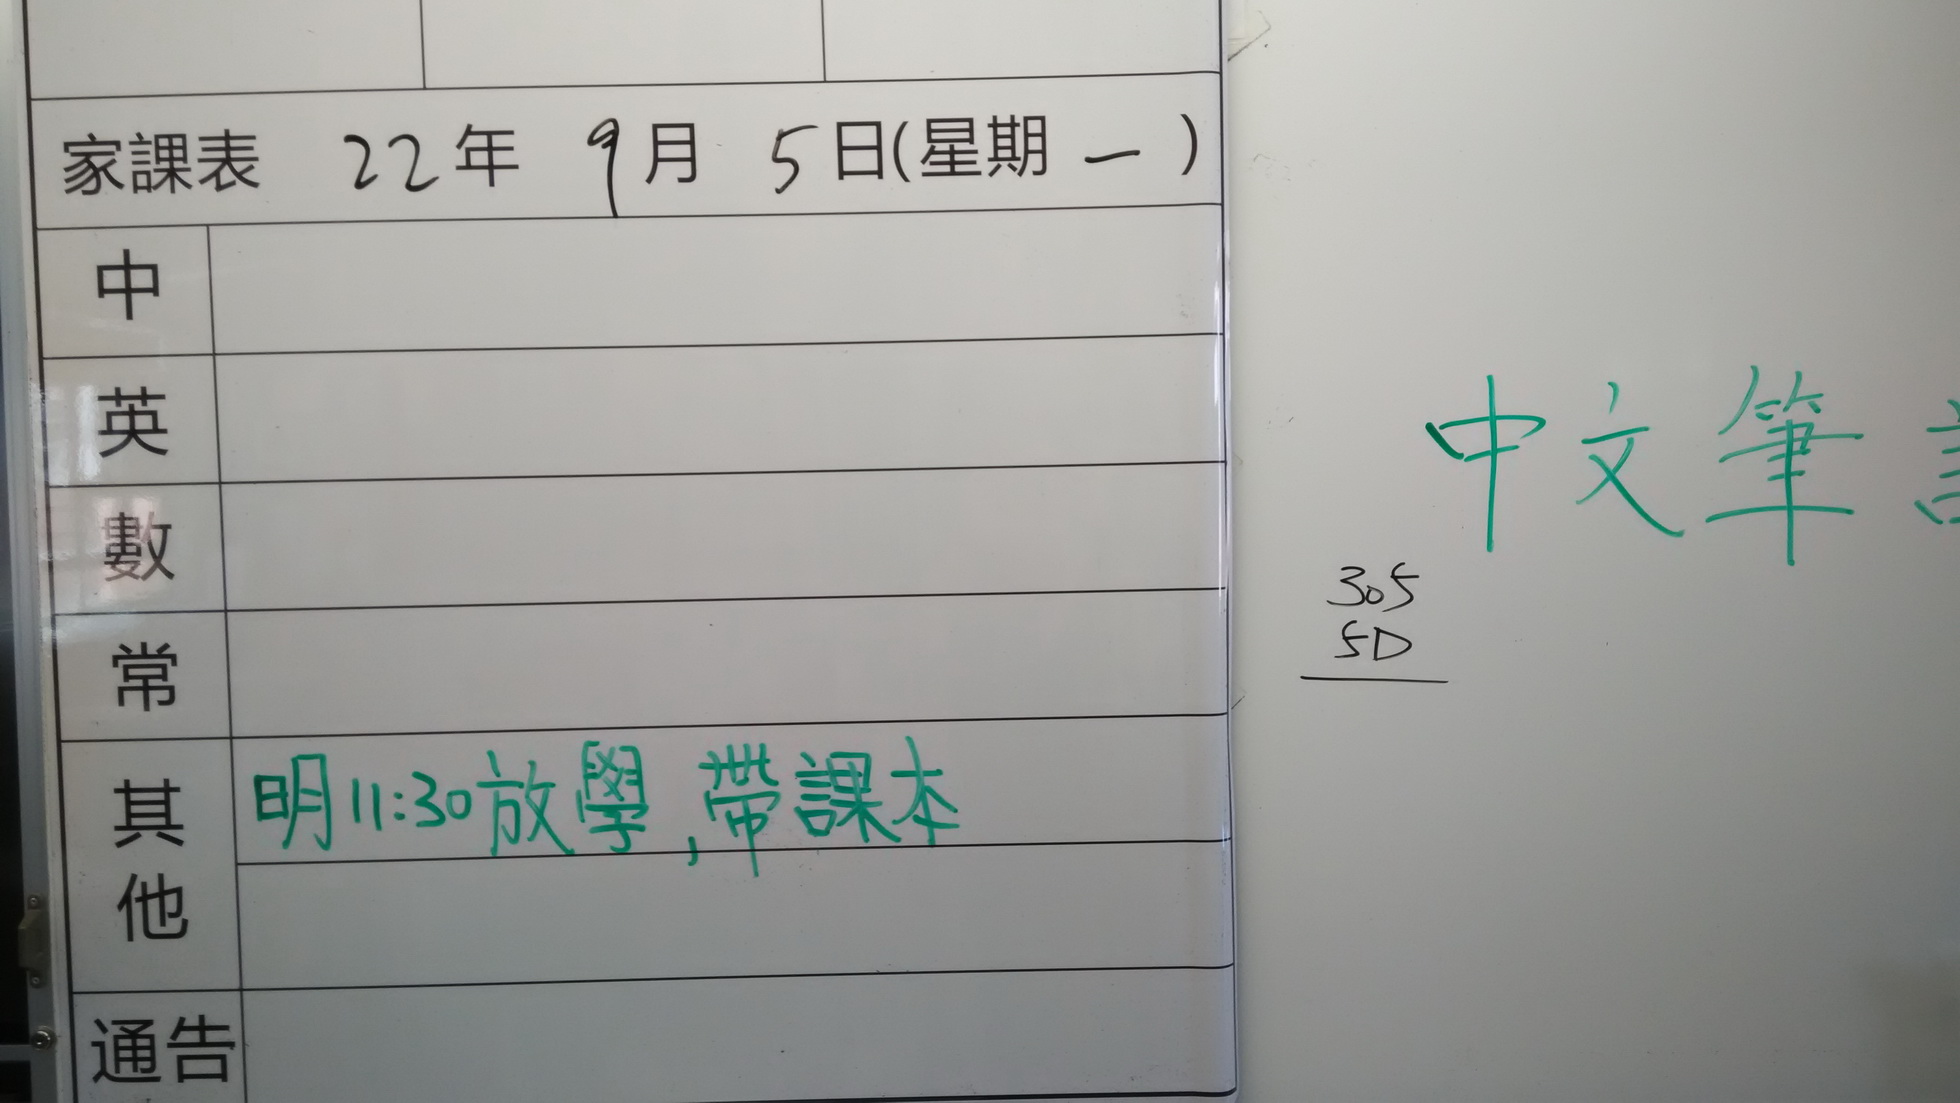 家課表 22年 9月 5日(星期一)
中
英
數
常
其他
明11:30放學,帶課本
通告
中文筆
305
5D